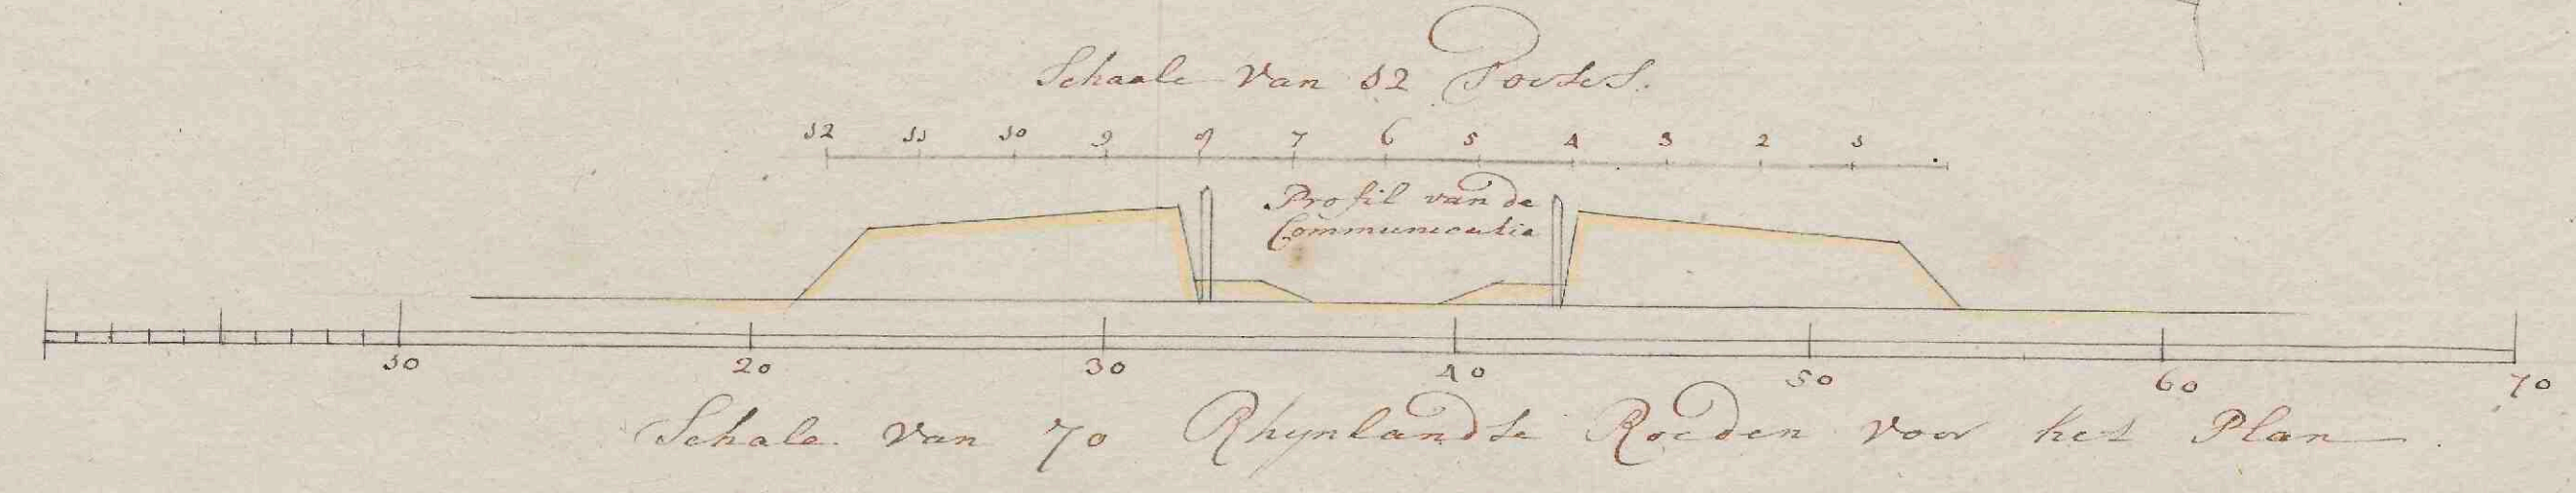 Schaale Van 12 Voetes.
12 11 10 9 8 7 6 5 4 3 2 1
Profil van de
Communicatie
10 20 30 40 50 60 70
Schale Van 70 Rhynlandse Roeden voor het Plan